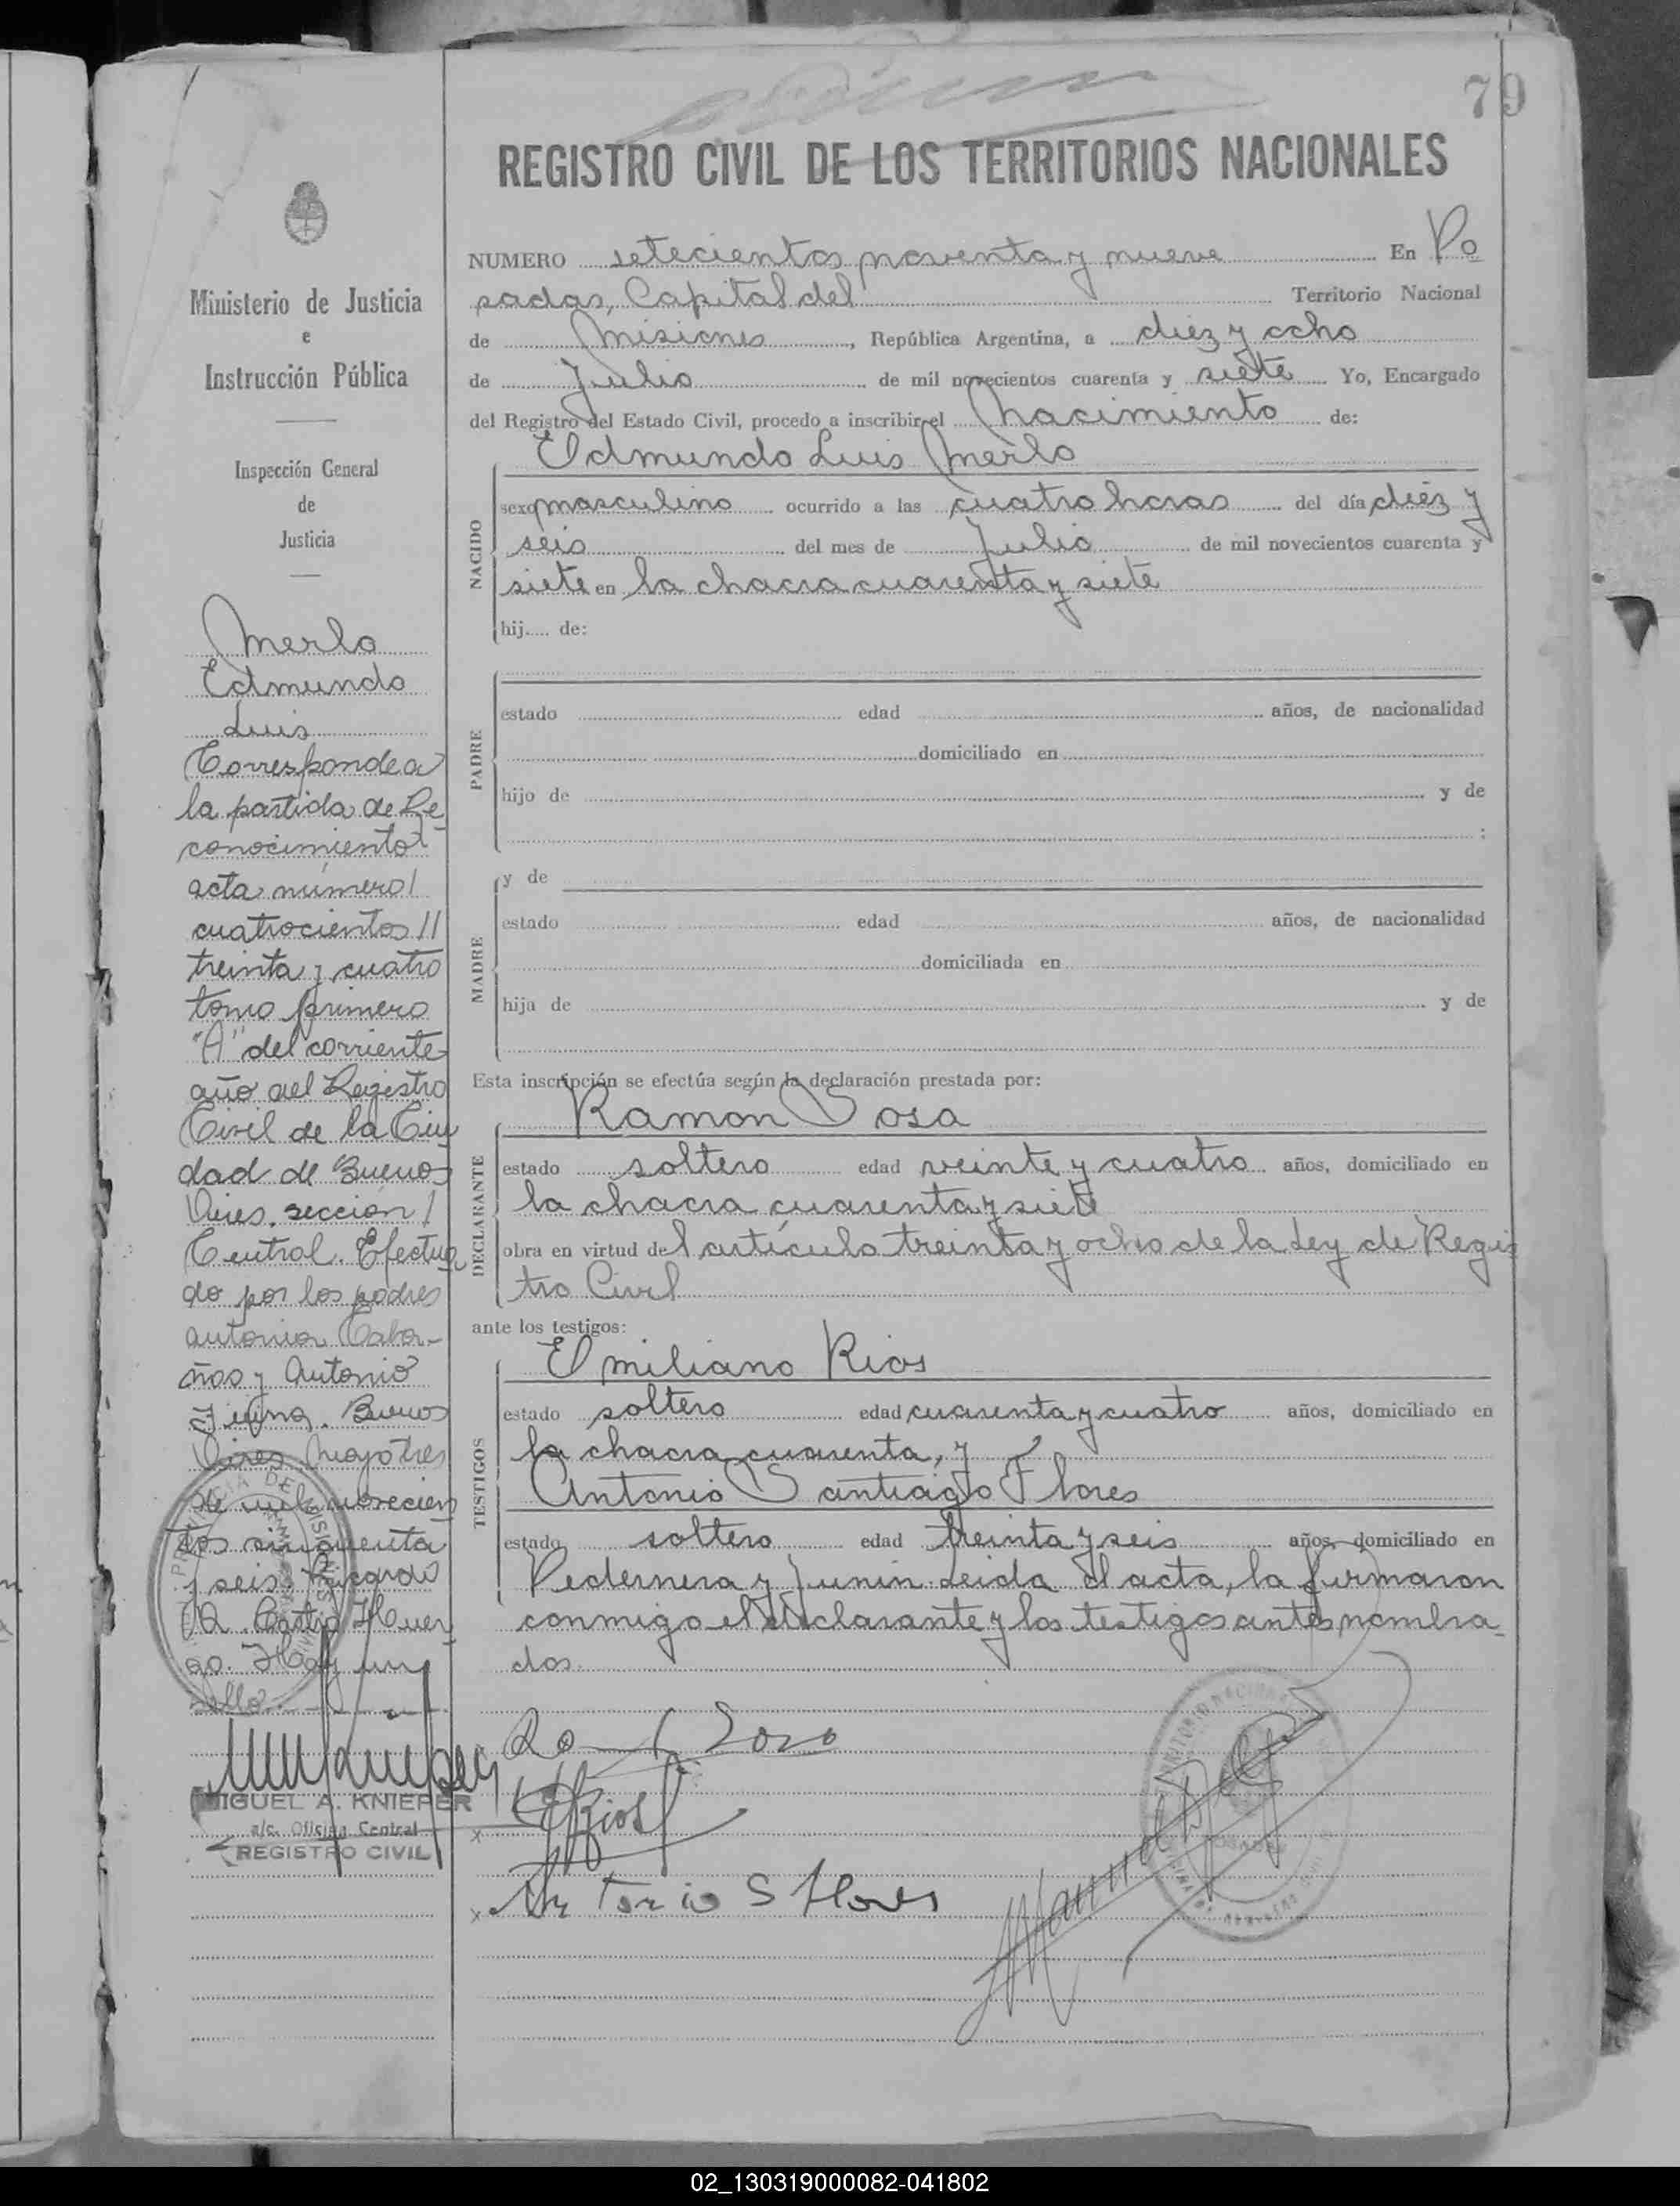 79
REGISTRO CIVIL DE LOS TERRITORIOS NACIONALES
NUMERO setecientos noventa y nueve En Po
sadas, Capital del Territorio Nacional
de Misiones, República Argentina, a diez y ocho
de Julio de mil novecientos cuarenta y siete Yo, Encargado
del Registro del Estado Civil, procedo a inscribir el Nacimiento de:
Edmundo Luis Merlo
NACIDO
sexo masculino ocurrido a las cuatro horas del día diez y
seis del mes de Julio de mil novecientos cuarenta y
siete en la chacra cuarenta y siete
hij.... de:
PADRE
estado edad años, de nacionalidad
domiciliado en
hijo de y de
:
MADRE
y de
estado edad años, de nacionalidad
domiciliada en
hija de y de
Esta inscripción se efectúa según la declaración prestada por:
Ramón Sosa
DECLARANTE
estado soltero edad veinte y cuatro años, domiciliado en
la chacra cuarenta y siete
obra en virtud del artículo treinta y ocho de la Ley de Regis
tro Civil
ante los testigos:
Emiliano Rios
TESTIGOS
estado soltero edad cuarenta y cuatro años, domiciliado en
la chacra cuarenta, y
Antonio Santiago Flores
estado soltero edad treinta y seis años, domiciliado en
Pedernera y Junin. Leida el acta, la firmaron
conmigo el declarante y los testigos antes nombra-
dos.
Sosa
x ERios
x Antonio S Flores
Ministerio de Justicia
e
Instrucción Pública
Inspección General
de
Justicia
Merlo
Edmundo
Luis
Corresponde a
la partida de Re
conocimiento
acta número/
cuatrocientos //
treinta y cuatro
tomo primero
"A" del corriente
año del Registro
Civil de la Ciu
dad de Buenos
Aires, sección/
Central. Efectua
do por los padres
Antonia
y Antonio
Buenos
Aires, Mayo tres
de mil novecien
tos cincuenta
y seis. Ricardo
Castro
Hay un
sello.
MIGUEL A. KNIEPER
a/c. Oficina Central
REGISTRO CIVIL
02_130319000082-041802